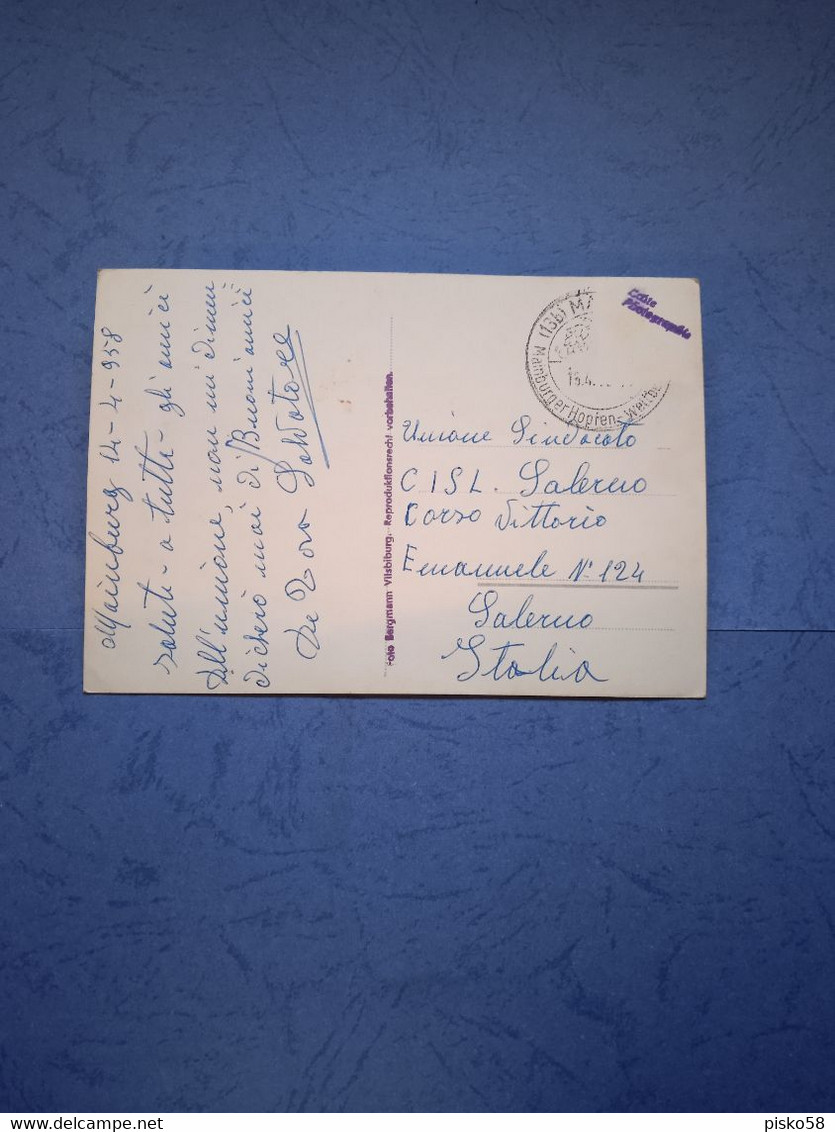 Mainburg 14-4-958
saluti - a tutti - gli amici
All'unione, non mi dimen
ticherò mai di Buoni amici
De Salvatore
Foto Bergmann Vilsbiburg. Reproduktionsrecht vorbehalten.
(13b) MA
15.4.
Mainburger Hopfen-
Echte
Photographie
Unione Sindacato
C I S L. Salerno
Corso Vittorio
Emanuele N° 124
Salerno
Italia
www.delcampe.net
pisko58